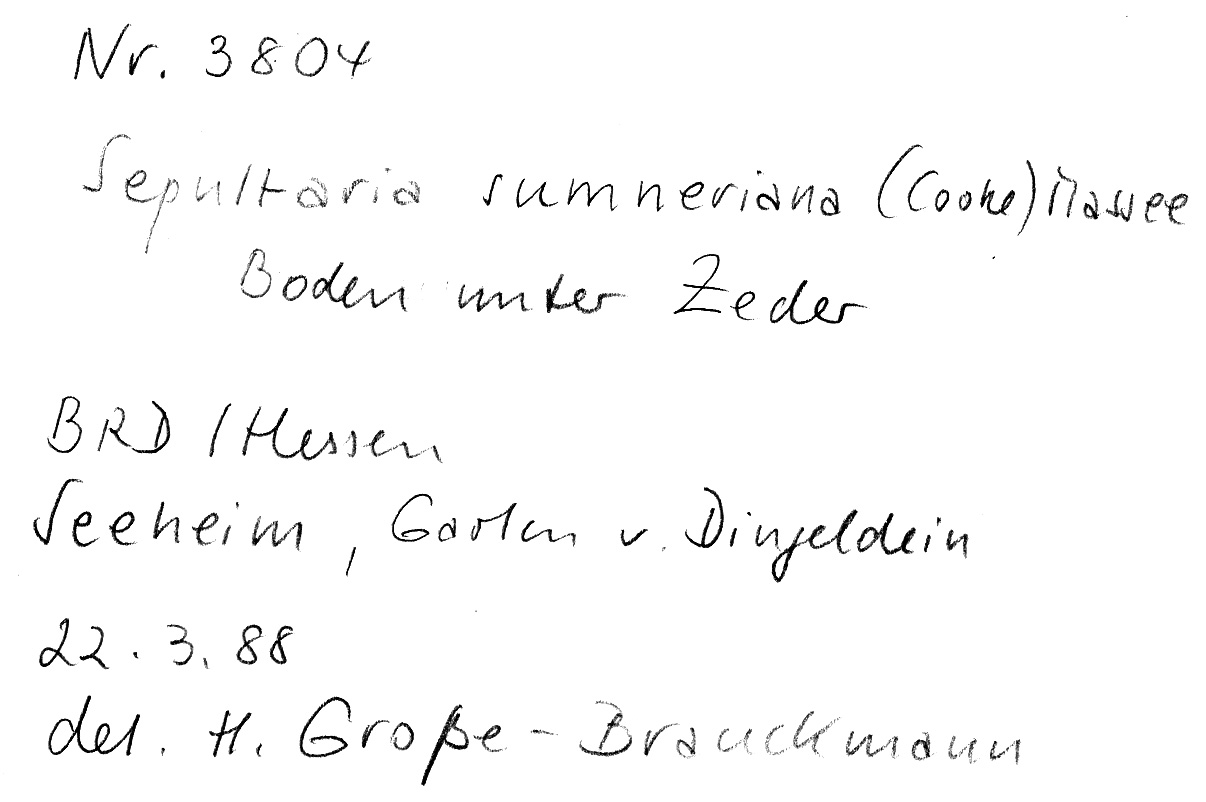 Nr. 3804
Sepultaria sumneriana (Cooke) Massee
Boden unter Zeder
BRD / Hessen
Seeheim, Garten v. Dingeldein
22.3.88
det. H. Große-Brauckmann